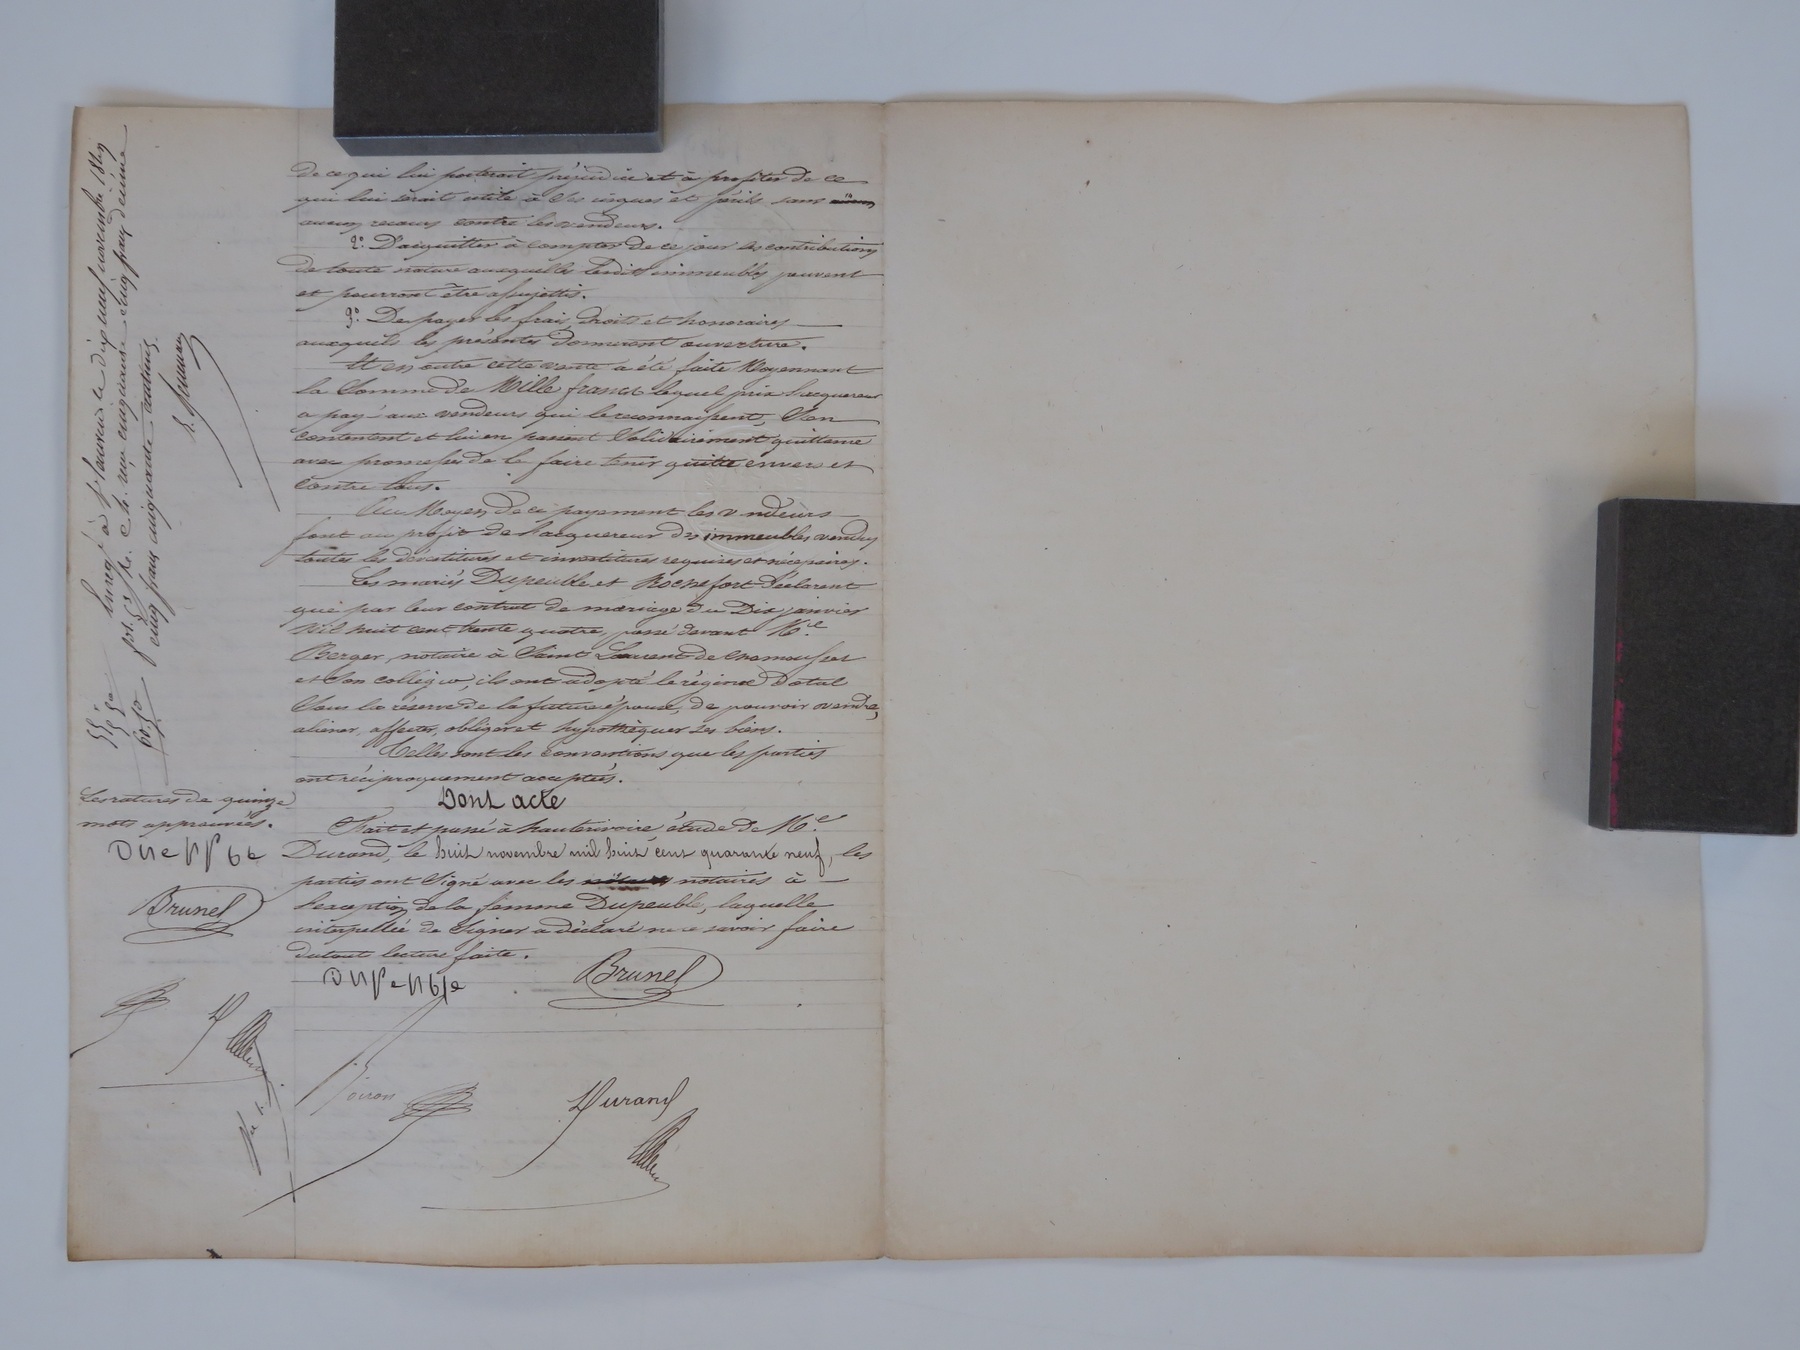 de ce qui lui porterait préjudice et à profiter de ce
qui lui serait utile à ses risques et périls sans
aucun recours contre les vendeurs.
2° D'acquitter à compter de ce jour les contributions
de toute nature auxquelles lesdits immeubles peuvent
et pourront être assujettis.
3° De payer les frais, droits et honoraires
auxquels les présentes donneront ouverture.
Et en outre cette vente a été faite Moyennant
la Somme de Mille francs lequel prix l'acquereur
a payé aux vendeurs qui le reconnaissent, s'en
contentent et lui en passent Solidairement quittance
avec promesse de le faire tenir quitte envers et
contre tous.
Au Moyen de ce payement les vendeurs
font au profit de l'acquereur des immeubles vendus
toutes les dévetitures et investitures requises et nécessaires.
Les mariés Dupeuble et Rochefort déclarent
que par leur contrat de mariage du Dix janvier
Mil huit cent trente quatre, passé devant Me
Berger, notaire à Saint Laurent de Chamousset
et Son collégue, ils ont adopté le régime Dotal
Sous la réserve de la future épouse, de pouvoir vendre,
aliener, affecter, obliger et hypothèquer ses biens.
Telles sont les conventions que les parties
ont réciproquement acceptées.
Dont acte
Fait et passé à hauterivoire étude de Me
Durand, le huit novembre mil huit cent quarante neuf, les
parties ont Signé avec les notaires à
l'exception de la femme Dupeuble, laquelle
interpellée de Signer a déclaré ne ce savoir faire
dutout lecture faite.
Brunel
Durand
Les ratures de quinze
mots approuvées.
Brunel
Enregé à St Laurent le dix neuf novembre 1849
cinq francs cinquante centimes